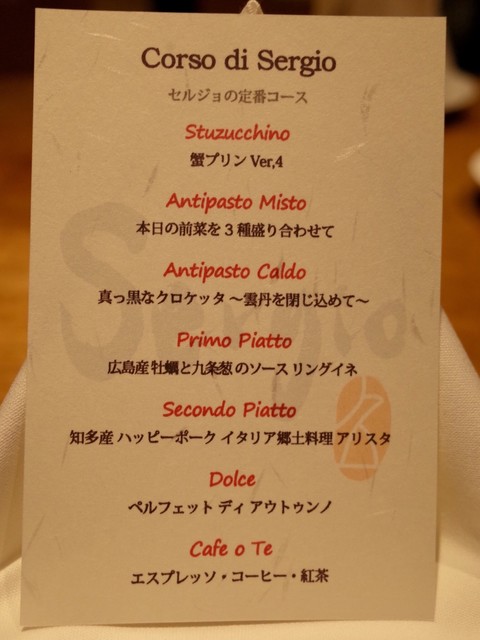 Corso di Sergio
セルジョの定番コース
Stuzucchino
蟹プリン Ver,4
Antipasto Misto
本日の前菜を3種盛り合わせて
Antipasto Caldo
真っ黒なクロケッタ ～雲丹を閉じ込めて～
Primo Piatto
広島産 牡蠣と九条葱のソース リングイネ
Secondo Piatto
知多産 ハッピーポーク イタリア郷土料理 アリスタ
Dolce
ペルフェット ディ アウトゥンノ
Cafe o Te
エスプレッソ・コーヒー・紅茶
Sergio